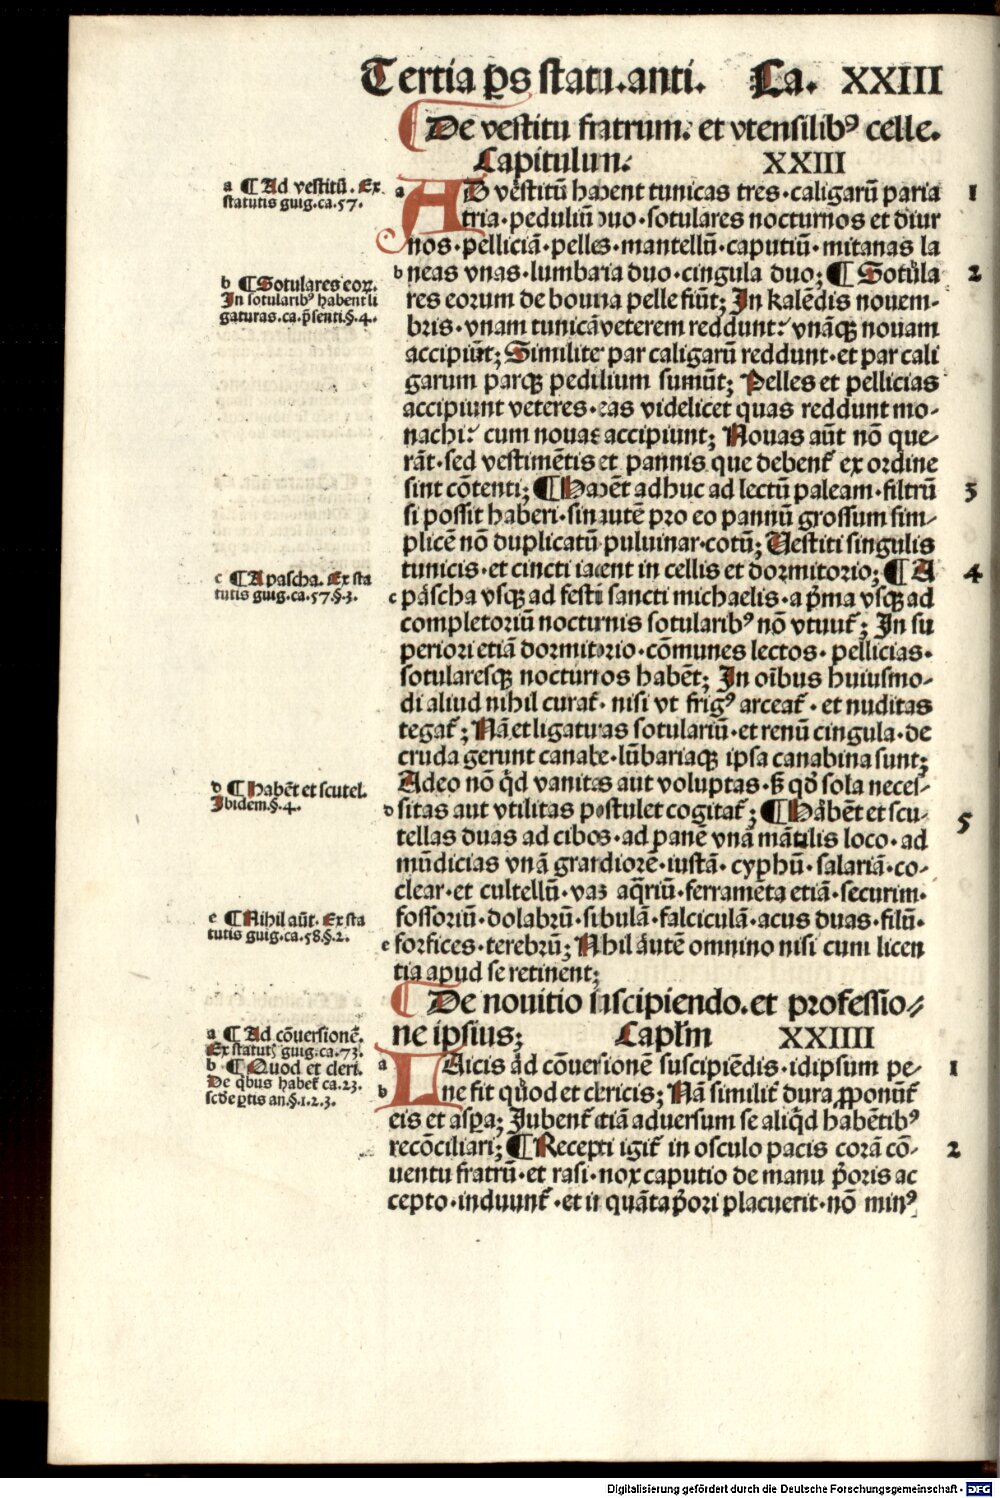 Tertia ꝑs statu.anti. Ca. XXIII
De vestitu fratrum. et vtensilibꝰ celle.
Capitulum. XXIII
a ¶ Ad vestitū. Ex
statutis guig.ca.57.
a AD vestitū habent tunicas tres·caligarū paria 1
tria·peduliū duo·sotulares nocturnos et diur
nos·pelliciā·pelles·mantellū·caputiū·mitanas la
b neas vnas·lumbaria duo·cingula duo; ¶ Sotula 2
b ¶ Sotulares eoꝝ.
In sotularibꝰ habent li
gaturas.ca.p̄senti.§.4.
res eorum de bouina pelle fiūt; In kalēdis nouem-
bris·vnam tunicā veterem reddunt: vnāqꝫ nouam
accipiūt; Similiter par caligarū reddunt·et par cali
garum parqꝫ pedilium sumūt; Pelles et pellicias
accipiunt veteres·eas videlicet quas reddunt mo-
nachi: cum nouas accipiunt; Nouas aūt nō que-
rāt·sed vestimētis et pannis que debent̄ ex ordine
sint cōtenti; ¶ Habēt adhuc ad lectū paleam·filtrū 3
si possit haberi·sin autē pro eo pannū grossum sim-
plicē nō duplicatū puluinar·cotū; Vestiti singulis
tunicis·et cincti iacent in cellis et dormitorio; ¶ A 4
c ¶ A pascha. Ex sta
tutis guig.ca.57.§.3.
c pascha vsqꝫ ad festū sancti michaelis·a p̄ma vsqꝫ ad
completoriū nocturnis sotularibꝰ nō vtunt̄; In su
periori etiā dormitorio·cōmunes lectos·pellicias·
sotularesqꝫ nocturnos habēt; In oībus huiusmo-
di aliud nihil curat̄·nisi vt frigꝰ arceat̄·et nuditas
tegat̄; Nā et ligaturas sotulariū·et renū cingula·de
cruda gerunt canabe·lūbariaqꝫ ipsa canabina sunt;
Adeo nō q̄d vanitas aut voluptas·ꞩ qd̄ sola neces-
d ¶ Habēt et scutel.
Ibidem.§.4.
d sitas aut vtilitas postulet cogitat̄; ¶ Habēt et scu- 5
tellas duas ad cibos·ad panē vnā mātilis loco·ad
mūdicias vnā grandiorē·iustā·cyphū·salariā·co-
clear·et cultellū·vas aq̄riū·ferramēta etiā·securim·
e ¶ Nihil aūt. Ex sta
tutis guig.ca.58.§.2.
fossoriū·dolabrū·sibulā·falciculā·acus duas·filū·
e forfices·terebrū; Nihil autē omnino nisi cum licen
tia apud se retinent;
De nouitio suscipiendo.et professio-
ne ipsius; Capłm XXIIII
a ¶ Ad cōuersionē.
Ex statut̄ guig.ca.73.
b ¶ Quod et cleri.
De q̄bus habet̄ ca.23.
scd̄e ꝑtis an.§.1.2.3.
a LAicis ad cōuersionē suscipiēdis·idipsum pe- 1
b ne fit quod et clericis; Nā similit̄ dura ꝓponūt̄
eis et aspa; Jubent̄ etiā aduersum se aliq̄d habētibꝰ
recōciliari; ¶ Recepti igit̄ in osculo pacis corā cō- 2
uentu fratrū·et rasi·nox caputio de manu p̄oris ac
cepto·induunt̄·et in quāta p̄ori placuerit·nō minꝰ
Digitalisierung gefördert durch die Deutsche Forschungsgemeinschaft - DFG